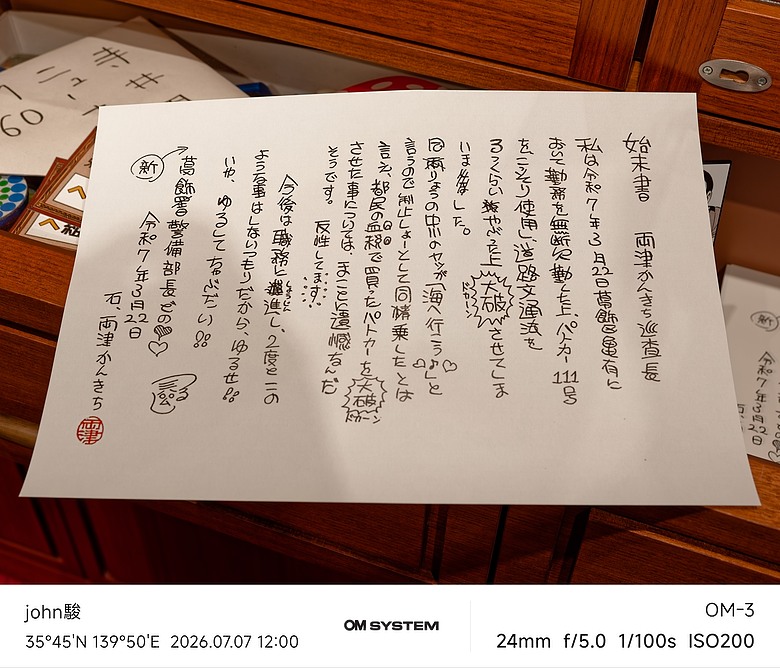 始末書　両津かんきち巡査長
私は令和7年3月22日葛飾区亀有に
おいて勤務を無断欠勤した上、パトカー111号
をこっそり使用し、道路交通法を
上、大破させてしま
ドカーン
いました。
同両りょうの中川のヤツが「海へ行こうよ♪」と
言うので制止しよーとして同情乗したとは
言え、都民の血税で買ったパトカーを大破
ドカーン
させた事については、まことに遺憾なんだ
そうです。反性してます。
今後は職務に邁進し、2度とこの
ような事はしないつもりだから、ゆるせ!!
いや、ゆるしてちょぶだい!!
葛飾署警備部長どの
新
令和7年3月22日
右、両津かんきち
両津
60
ニュ
新
令和7年3月22日
john駿
35°45'N 139°50'E 2026.07.07 12:00
OM SYSTEM
OM-3
24mm f/5.0 1/100s ISO200